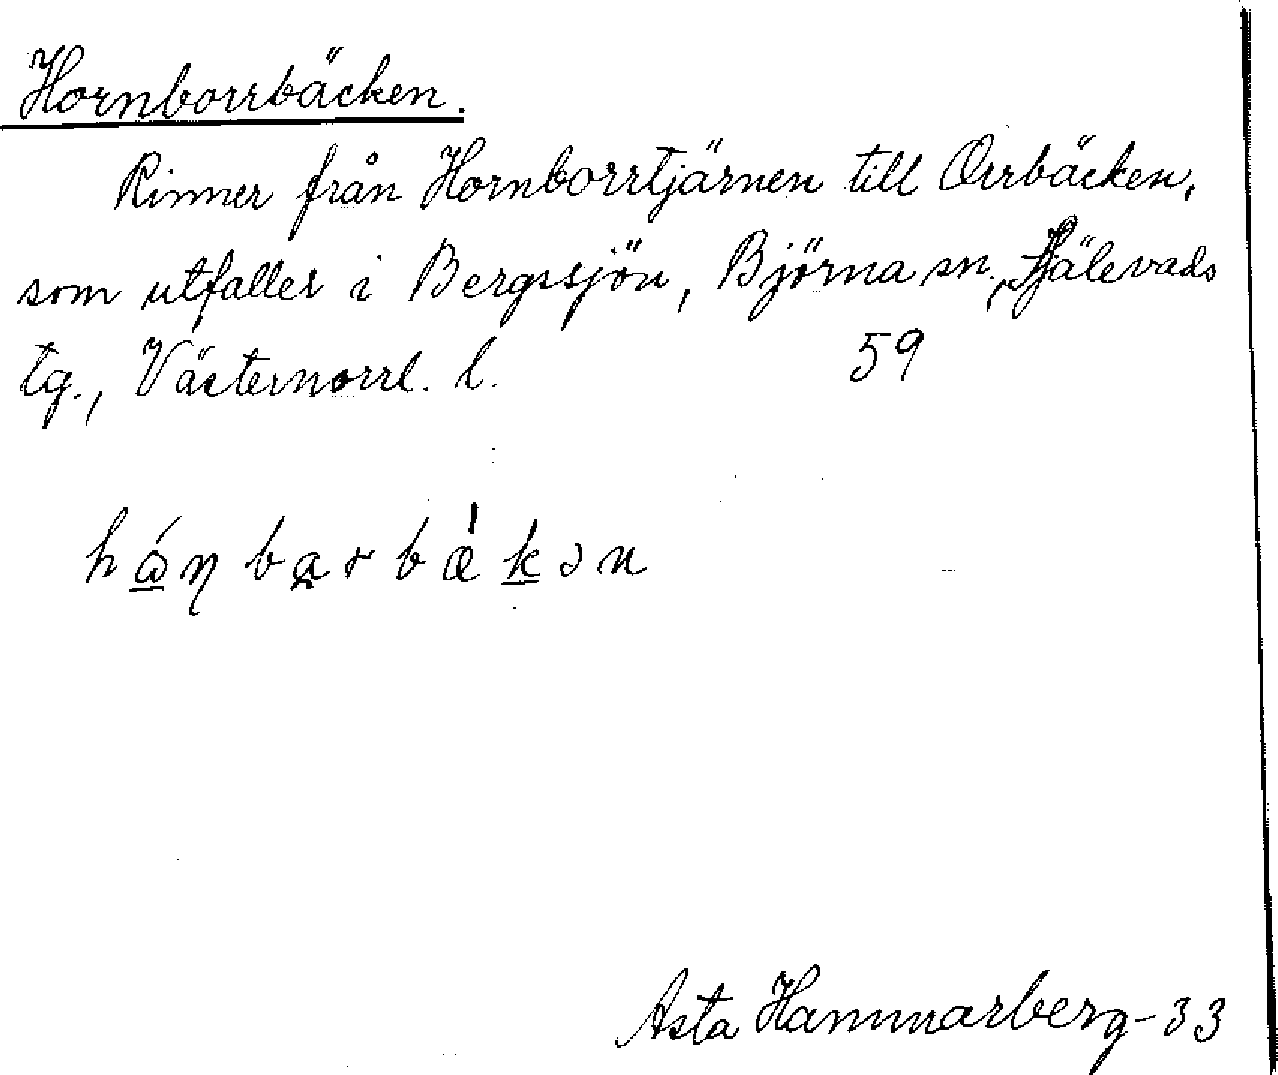 Hornborrbäcken.
Rinner från Hornborrtjärnen till Orrbäcken,
som utfaller i Bergssjön, Björna sn., Själevads
tg., Västernorrl. l. 59
hǻŋbarbǽkən
Asta Hammarberg-33